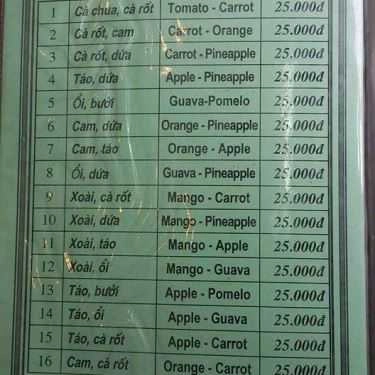 1 Cà chua, cà rốt Tomato - Carrot 25.000đ
2 Cà rốt, cam Carrot - Orange 25.000đ
3 Cà rốt, dứa Carrot - Pineapple 25.000đ
4 Táo, dứa Apple - Pineapple 25.000đ
5 Ổi, bưởi Guava-Pomelo 25.000đ
6 Cam, dứa Orange - Pineapple 25.000đ
7 Cam, táo Orange - Apple 25.000đ
8 Ổi, dứa Guava - Pineapple 25.000đ
9 Xoài, cà rốt Mango - Carrot 25.000đ
10 Xoài, dứa Mango - Pineapple 25.000đ
11 Xoài, táo Mango - Apple 25.000đ
12 Xoài, ổi Mango - Guava 25.000đ
13 Táo, bưởi Apple - Pomelo 25.000đ
14 Táo, ổi Apple - Guava 25.000đ
15 Táo, cà rốt Apple - Carrot 25.000đ
16 Cam, cà rốt Orange - Carrot 25.000đ